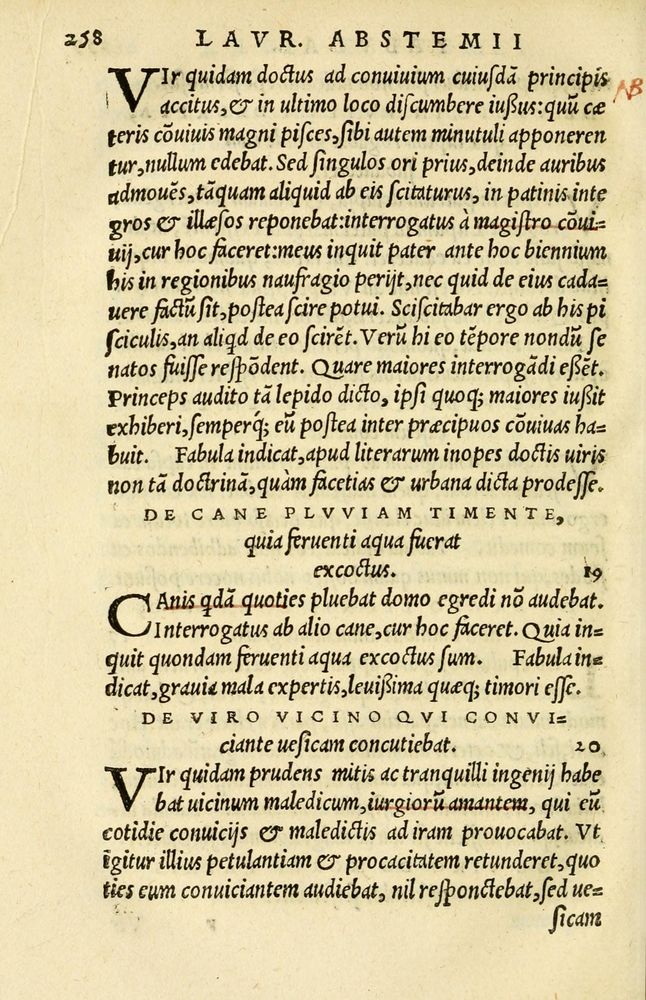 258 LAVR. ABSTEMII
VIr quidam doctus ad conuiuium cuiusdā principis
NB
accitus, & in ultimo loco discumbere iußus: quū cæ
teris cōuiuis magni pisces, sibi autem minutuli apponeren
tur, nullum edebat. Sed singulos ori prius, deinde auribus
admouēs, tāquam aliquid ab eis scitaturus, in patinis inte
gros & illæsos reponebat: interrogatus à magistro cōui=
uij, cur hoc faceret: meus inquit pater ante hoc biennium
his in regionibus naufragio perijt, nec quid de eius cada=
uere factū sit, postea scire potui. Sciscitabar ergo ab his pi
sciculis, an aliqd de eo scirēt. Verū hi eo tēpore nondū se
natos fuisse respōdent. Quare maiores interrogādi eßēt.
Princeps audito tā lepido dicto, ipsi quoq; maiores iußit
exhiberi, semperq́; eū postea inter præcipuos cōuiuas ha=
buit. Fabula indicat, apud literarum inopes doctis uiris
non tā doctrinā, quàm facetias & urbana dicta prodesse.
DE CANE PLVVIAM TIMENTE,
quia feruenti aqua fuerat
excoctus. 19
CAnis qdā quoties pluebat domo egredi nō audebat.
Interrogatus ab alio cane, cur hoc faceret. Quia in=
quit quondam feruenti aqua excoctus sum. Fabula in=
dicat, grauia mala expertis, leuißima quæq; timori esse.
DE VIRO VICINO QVI CONVI=
ciante uesicam concutiebat. 20
VIr quidam prudens mitis ac tranquilli ingenij habe
bat uicinum maledicum, iurgiorū amantem, qui eū
cotidie conuicijs & maledictis ad iram prouocabat. Vt
igitur illius petulantiam & procacitatem retunderet, quo
ties eum conuiciantem audiebat, nil respondebat, sed ue=
sicam